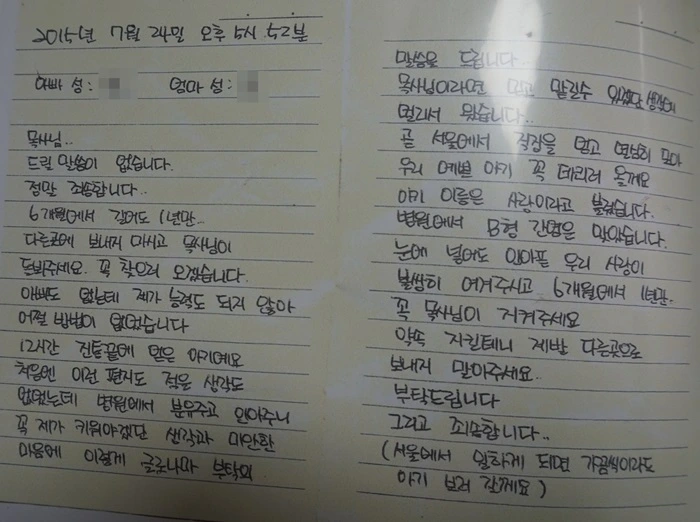 2015년 7월 24일 오후 5시 52분
아빠 성: 엄마 성:
목사님..
드릴 말씀이 없습니다.
정말 죄송합니다..
6개월에서 길어도 1년만...
다른곳에 보내지 마시고 목사님이
돌봐주세요. 꼭 찾으러 오겠습니다.
아빠도 없는데 제가 능력도 되지 않아
어쩔 방법이 없었습니다
12시간 진통끝에 얻은 아기예요
처음엔 이런 편지도 적은 생각도
없었는데 병원에서 분유주고 안아주니
꼭 제가 키워야겠단 생각과 미안한
마음에 이렇게 글로나마 부탁의
말씀을 드립니다..
목사님이라면 믿고 맡길수 있겠단 생각에
멀리서 왔습니다..
곧 서울에서 직장을 얻고 열심히 모아
우리 예쁜 아기 꼭 데리러 올께요
아기 이름은 사랑이라고 불렀습니다.
병원에서 B형 간염은 맞았습니다.
눈에 넣어도 안아픈 우리 사랑이
불쌍히 여겨주시고 6개월에서 1년만..
꼭 목사님이 지켜주세요
약속 지킬테니 제발 다른곳으로
보내지 말아주세요..
부탁드립니다
그리고 죄송합니다..
(서울에서 일하게 되면 가끔씩이라도
아기 보러 갈께요)